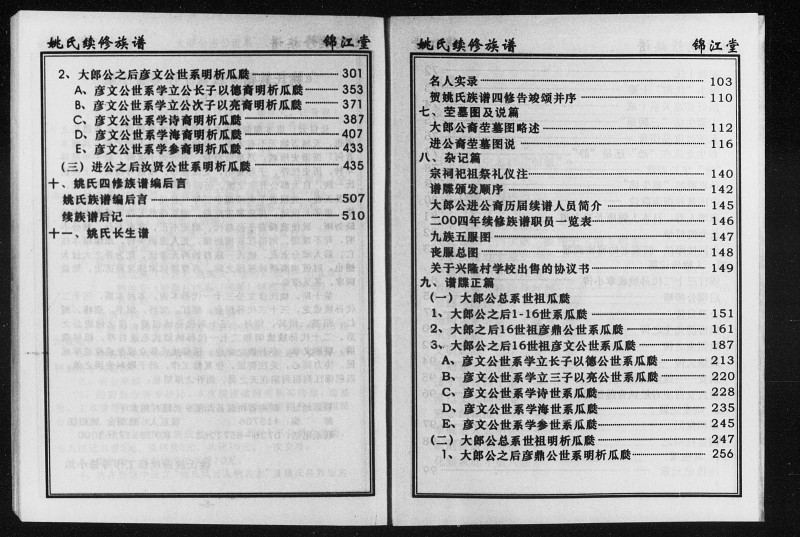 姚氏续修族谱 锦江堂
2、大郎公之后彦文公世系明析瓜瓞 301
A、彦文公世系学立公长子以德裔明析瓜瓞 353
B、彦文公世系学立公次子以亮裔明析瓜瓞 371
C、彦文公世系学诗裔明析瓜瓞 387
D、彦文公世系学海裔明析瓜瓞 407
E、彦文公世系学参裔明析瓜瓞 433
(三)进公之后汝贤公世系明析瓜瓞 435
十、姚氏四修族谱编后言
姚氏族谱编后言 507
续族谱后记 510
十一、姚氏长生谱
姚氏续修族谱 锦江堂
名人实录 103
贺姚氏族谱四修告竣颂并序 110
七、茔墓图及说篇
大郎公裔茔墓图略述 112
进公裔茔墓图说 116
八、杂记篇
宗祠祀祖祭礼仪注 140
谱牒颁发顺序 142
大郎公进公裔历届续谱人员简介 145
二OO四年续修族谱职员一览表 146
九族五服图 147
丧服总图 148
关于兴隆村学校出售的协议书 149
九、谱牒正篇
(一)大郎公总系世祖瓜瓞
1、大郎公之后1-16世系瓜瓞 151
2、大郎之后16世祖彦鼎公世系瓜瓞 161
3、大郎公之后16世祖彦文公世系瓜瓞 187
A、彦文公世系学立长子以德公世系瓜瓞 213
B、彦文公世系学立三子以亮公世系瓜瓞 220
C、彦文公世系学诗世系瓜瓞 228
D、彦文公世系学海世系瓜瓞 235
E、彦文公世系学参世系瓜瓞 245
(二)大郎公总系世祖明析瓜瓞 247
1、大郎公之后彦鼎公世系明析瓜瓞 256